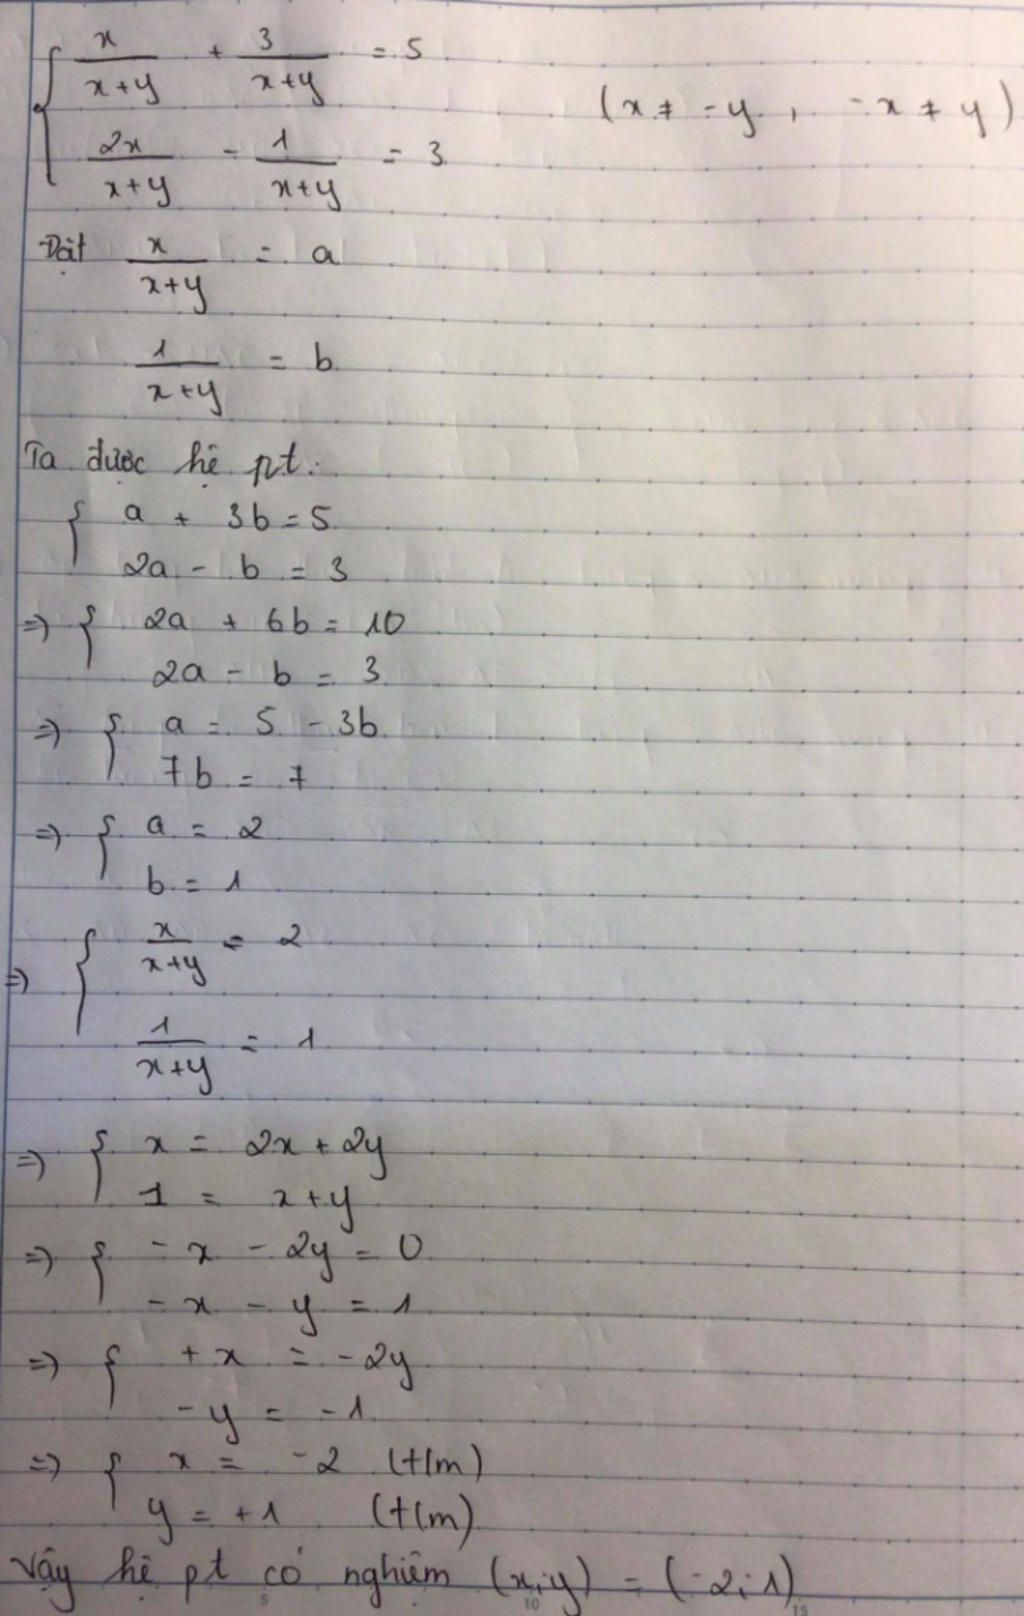 x/(x+y) + 3/(x+y) = 5
(x ≠ -y, -x ≠ y)
2x/(x+y) - 1/(x+y) = 3
Đặt x/(x+y) = a
1/(x+y) = b
Ta được hệ pt:
{ a + 3b = 5
2a - b = 3
=> { 2a + 6b = 10
2a - b = 3
=> { a = 5 - 3b
7b = 7
=> { a = 2
b = 1
=> { x/(x+y) = 2
1/(x+y) = 1
=> { x = 2x + 2y
1 = x + y
=> { - x - 2y = 0
- x - y = 1
=> { + x = -2y
- y = -1
=> { x = -2 (t/m)
y = +1 (t/m)
Vậy hệ pt có nghiệm (x;y) = (-2;1)
5 10 15